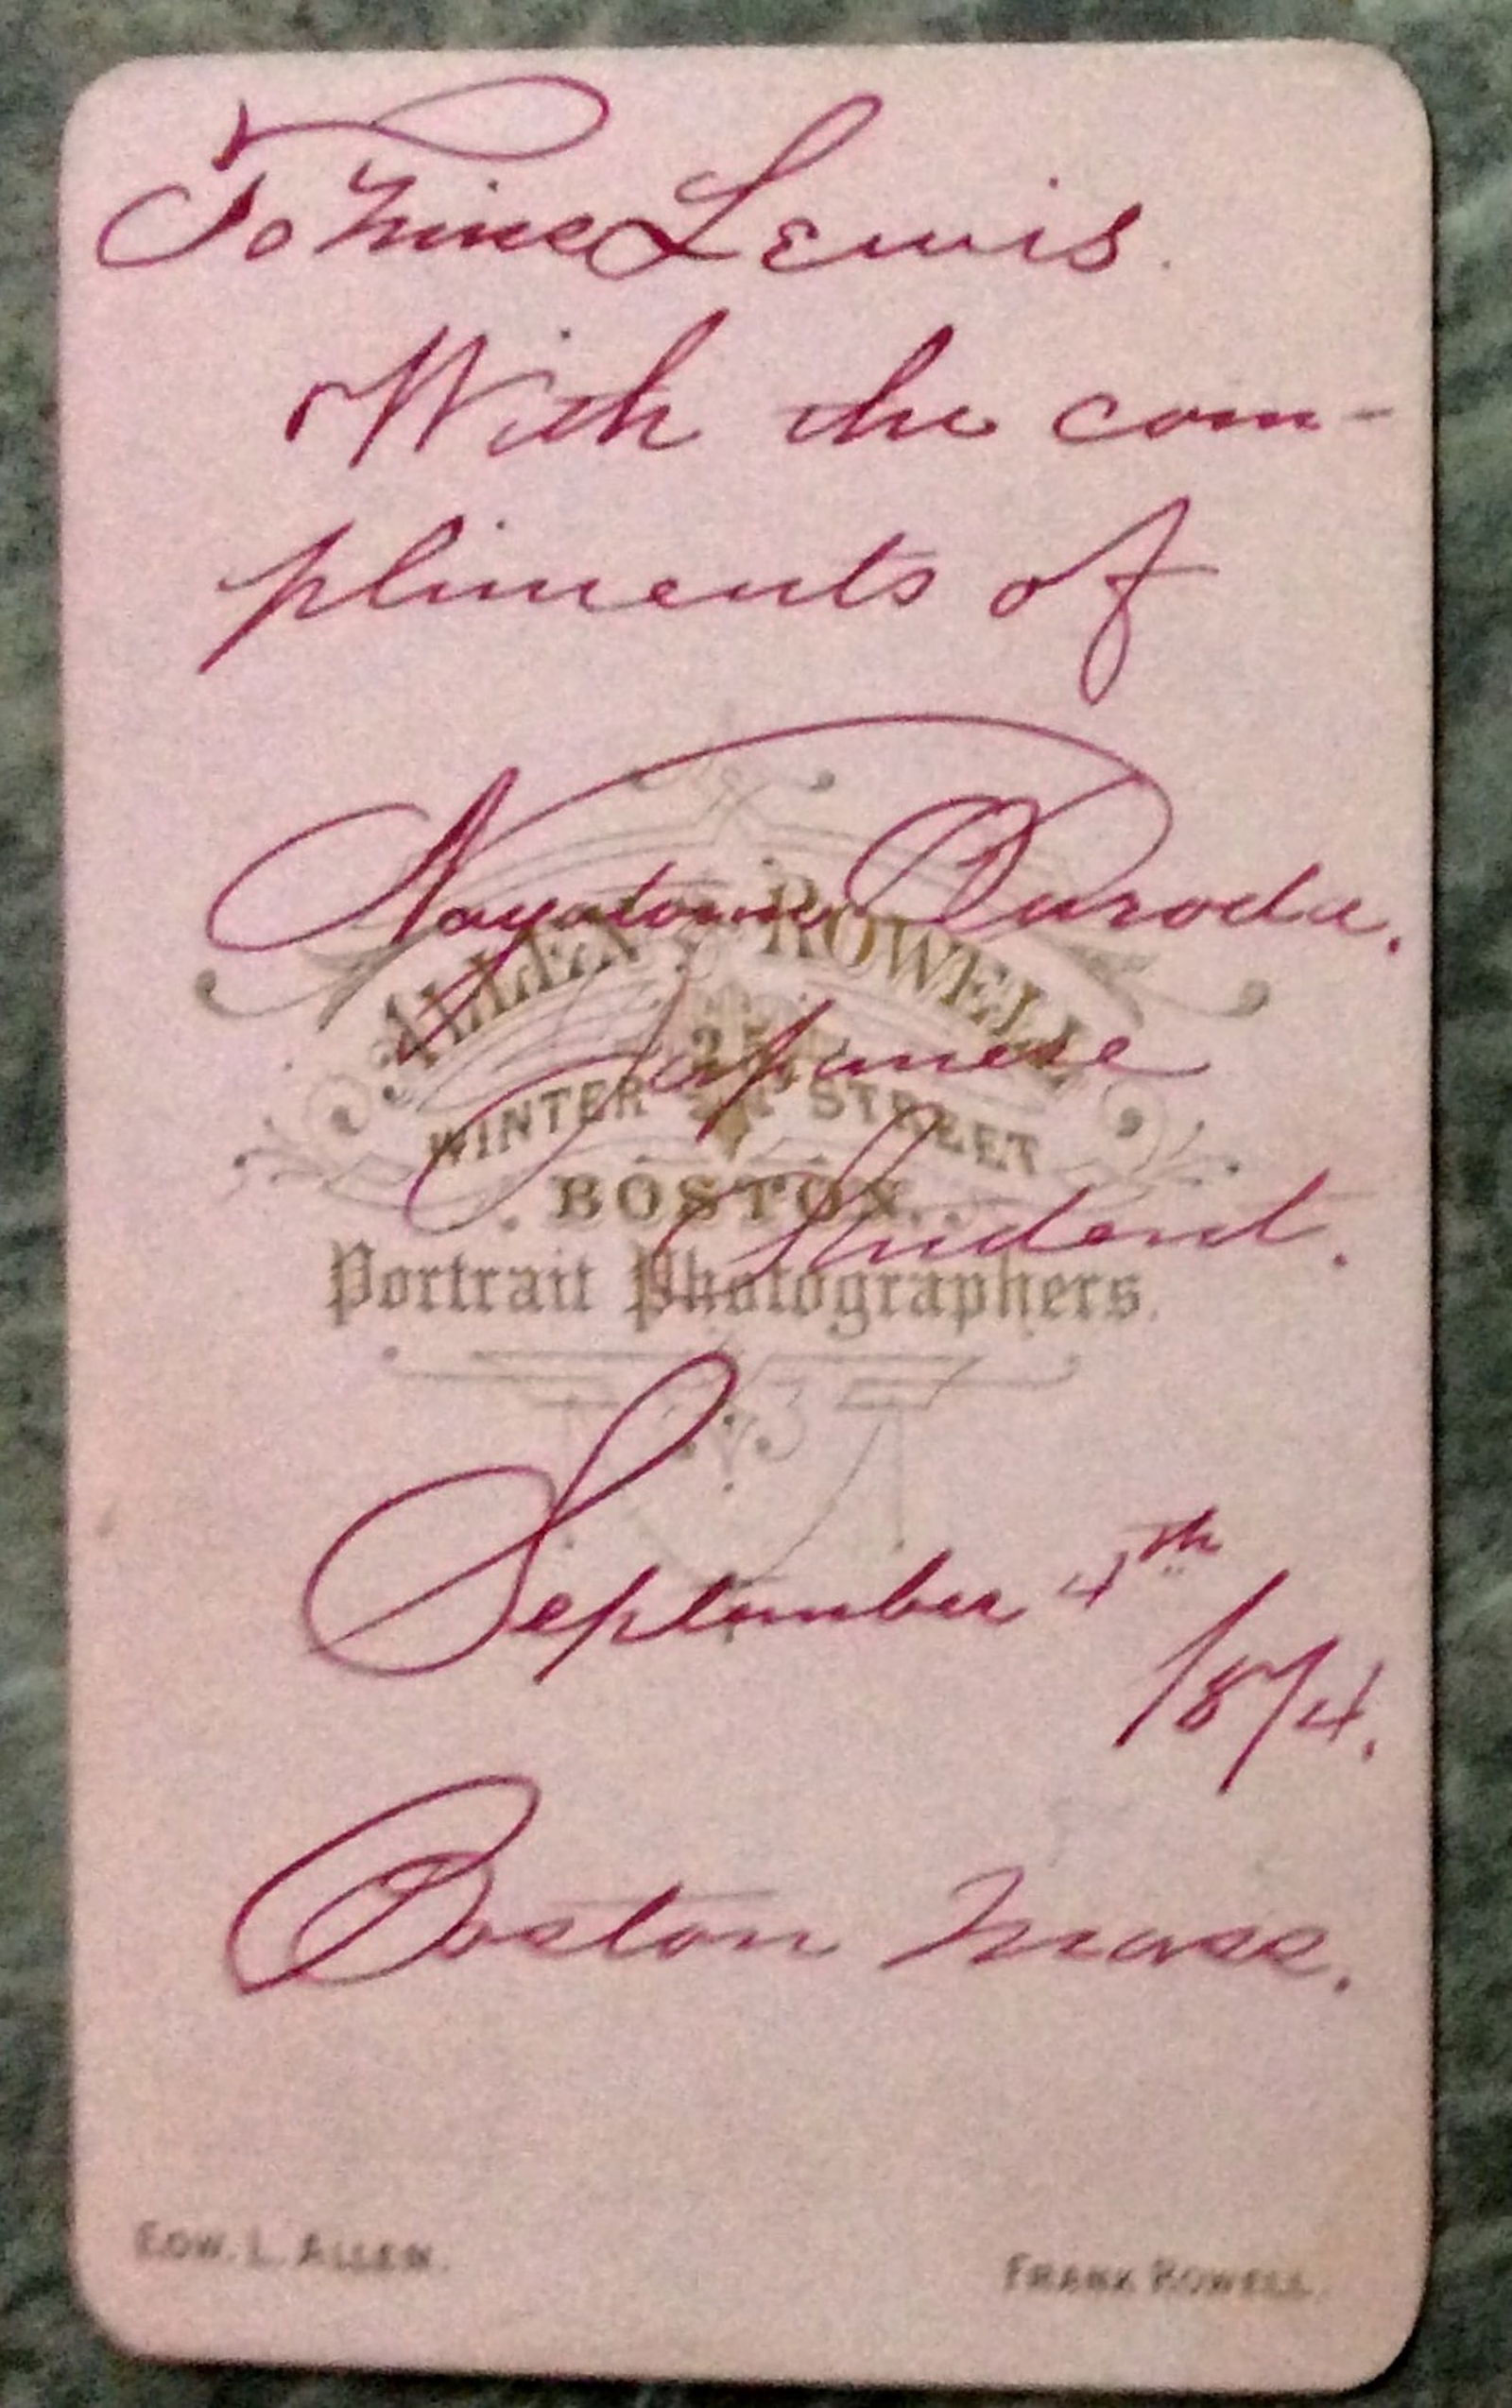 To Miss Lewis.
With the com-
pliments of
Nagatomo Kuroda.
Japanese
Student.
September 4th
1874.
Boston Mass.
ALLEN & ROWELL
25
WINTER STREET
BOSTON.
Portrait Photographers.
EDW. L. ALLEN.
FRANK ROWELL.